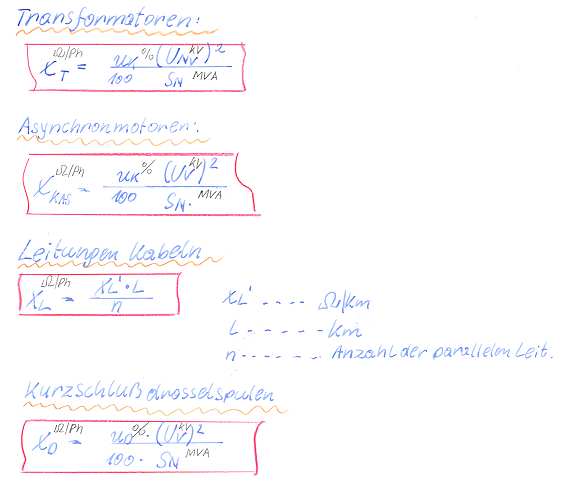 Transformatoren:
X_T^Ω/Ph = u_K^% (U_NV^kV)² / 100 S_N^MVA
Asynchronmotoren:
X_KAS^Ω/Ph = u_K^% (U_V^kV)² / 100 S_N.^MVA
Leitungen Kabeln
X_L^Ω/Ph = X_L'·L / n
X_L' ---- Ω/km
L ------ km
n ------- Anzahl der parallelen Leit.
Kurzschlußdrosselspulen
X_D^Ω/Ph = u_D^%. (U_V^kV)² / 100 · S_N^MVA